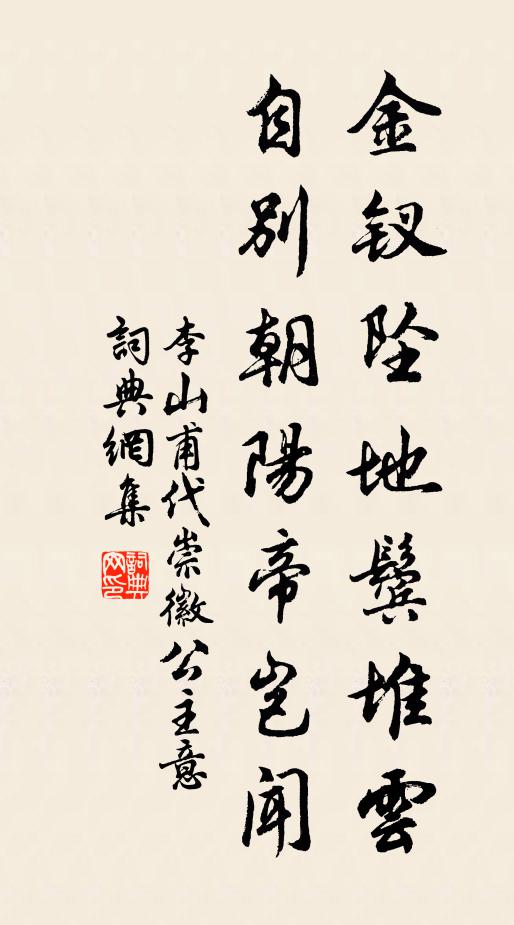 金钗坠地鬓堆雲
自别朝陽帝岂闻
李山甫代崇徽公主意
詞典網集
詞典
网印